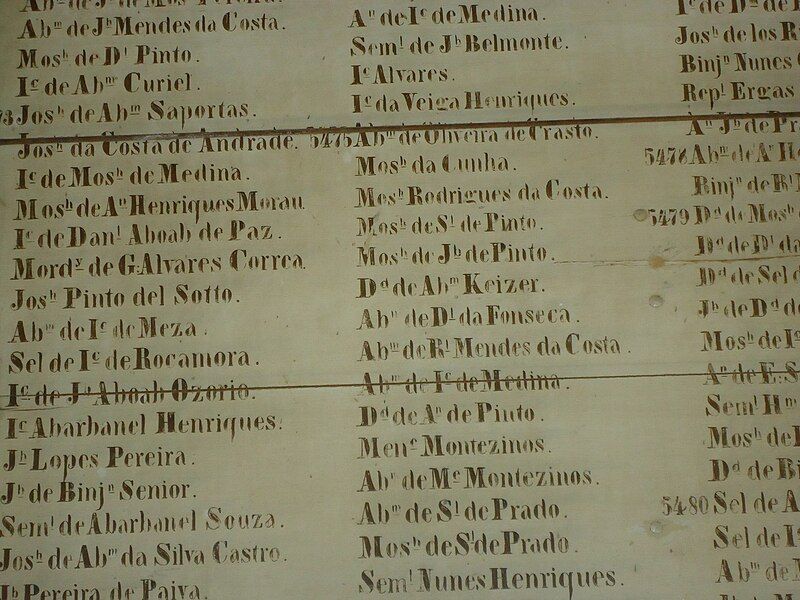 Abᵐ de Jᵇ Mendes da Costa.
Mosʰ de Dˡ Pinto.
Iᶜ de Abᵐ Curiel.
73 Josʰ de Abᵐ Saportas.
Josʰ da Costa de Andrade.
Iᶜ de Mosʰ de Medina.
Mosʰ de Aⁿ Henriques Morau
Iᶜ de Danˡ Aboab de Paz.
Mordʸ de G. Alvares Correa
Josʰ Pinto del Sotto.
Abᵐ de Iᶜ de Meza.
Sel de Iᶜ de Rocamora.
Iᶜ de Jᵃ Aboab Ozorio.
Iᶜ Abarbanel Henriques.
Jᵇ Lopes Pereira.
Jᵇ de Binjⁿ Senior.
Semˡ de Abarbanel Souza.
Josʰ de Abᵐ da Silva Castro.
Pereira de Paiva.
Aⁿ de Iᶜ de Medina.
Semˡ de Jᵇ Belmonte.
Iᶜ Alvares.
Iᶜ da Veiga Henriques.
5475 Abᵐ de Oliveira de Crasto.
Mosʰ da Cunha.
Mosʰ Rodrigues da Costa.
Mosʰ de Sˡ de Pinto.
Mosʰ de Jᵇ de Pinto.
Dᵈ de Abᵐ Keizer.
Abᵐ de Dˡ da Fonseca.
Abᵐ de Rˡ Mendes da Costa.
Abᵐ de Iᶜ de Medina.
Dᵈ de Aⁿ de Pinto.
Menᶜ Montezinos.
Abᵐ de Mᶜ Montezinos.
Abᵐ de Sˡ de Prado.
Mosʰ de Sˡ de Prado.
Semˡ Nunes Henriques.
Josʰ de los
Binjⁿ Nunes
Repˡ Ergas
Aⁿ Jᵃ de
5478 Abᵐ de Aⁿ
Binjⁿ de Rˡ
5479 Dᵈ de Mosʰ
Dᵈ de Dˡ da
Dᵈ de Sel de
Jᵇ de Dᵈ de
Mosʰ de Iᶜ
Aⁿ de E. S.
Semˡ Hᵐ
Mosʰ de
Dᵈ de
5480 Sel de
Sel de Iᶜ
Abᵐ de